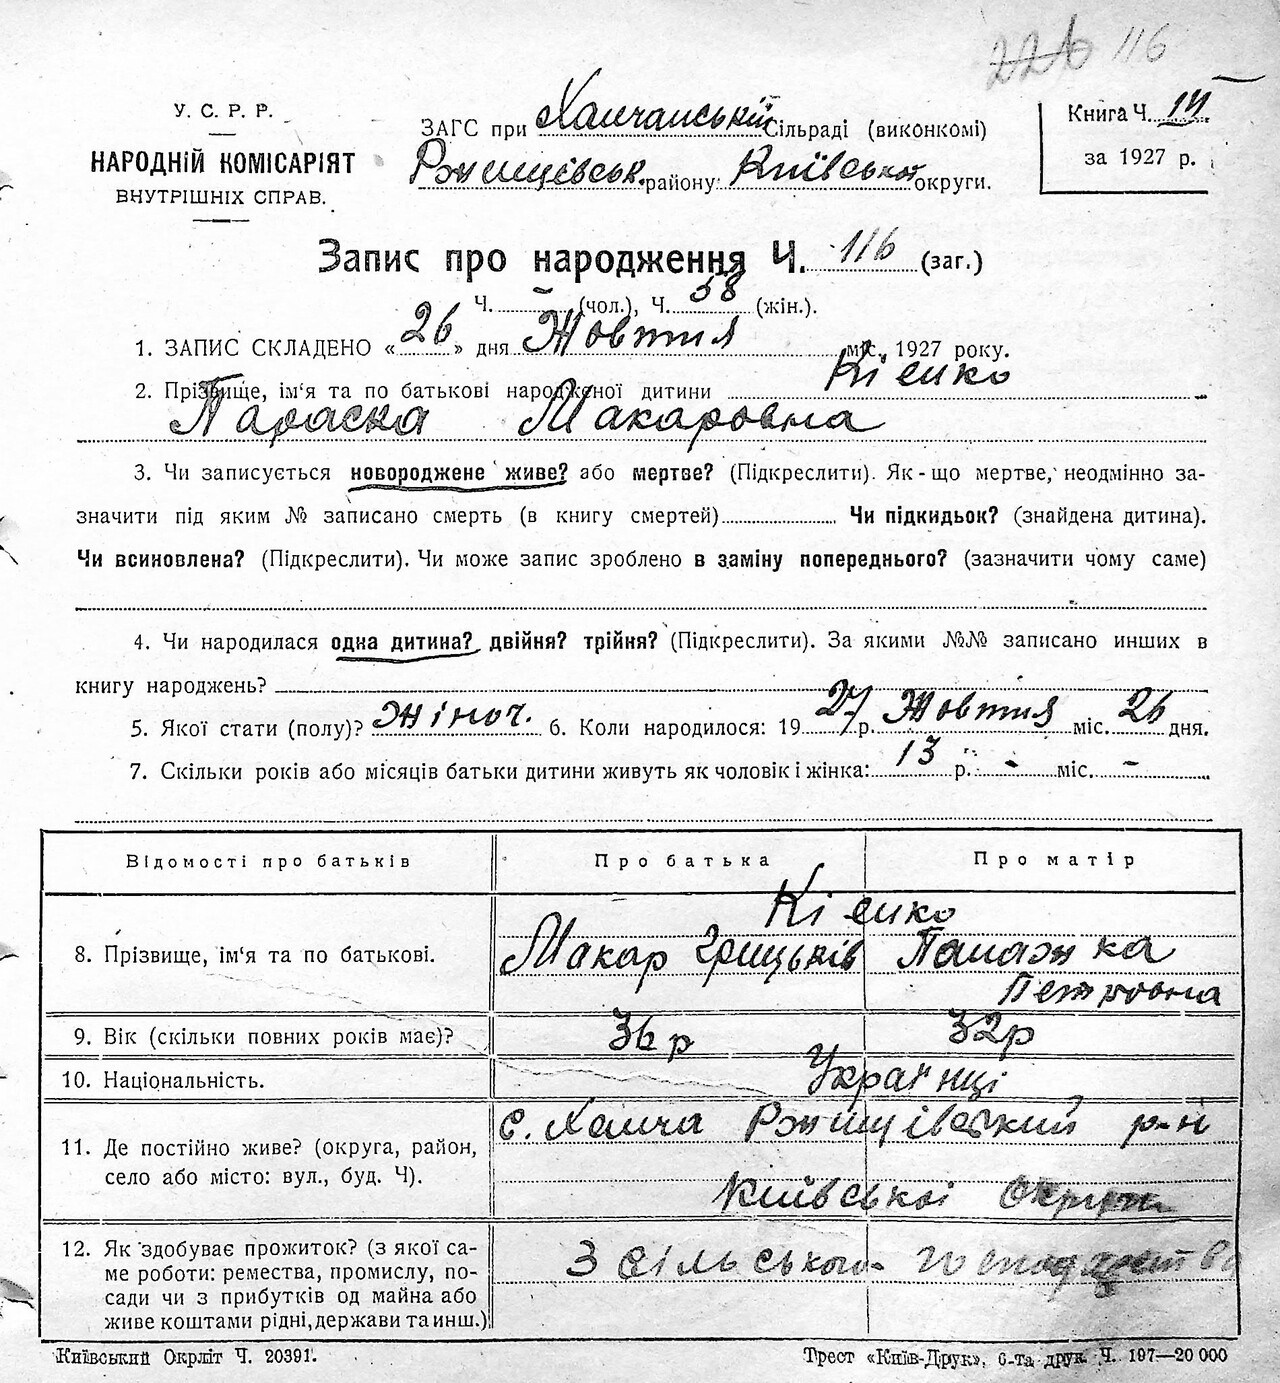 226 116
У. С. Р. Р.
НАРОДНІЙ КОМІСАРІЯТ
ВНУТРІШНІХ СПРАВ.
ЗАГС при Халчанській Сільраді (виконкомі)
Ржищівськ. району Київської округи.
Книга Ч. 14
за 1927 р.
Запис про народження Ч. 116 (заг.)
Ч. – (чол.), Ч. 58 (жін.).
1. ЗАПИС СКЛАДЕНО « 26 » дня Жовтня міс. 1927 року.
2. Прізвище, ім'я та по батькові народженої дитини Кієнко
Параска Макаровна
3. Чи записується новороджене живе? або мертве? (Підкреслити). Як-що мертве, неодмінно за-
значити під яким № записано смерть (в книгу смертей) Чи підкидьок? (знайдена дитина).
Чи всиновлена? (Підкреслити). Чи може запис зроблено в заміну попереднього? (зазначити чому саме)
4. Чи народилася одна дитина? двійня? трійня? (Підкреслити). За якими №№ записано инших в
книгу народжень?
5. Якої стати (полу)? Жіноч. 6. Коли народилося: 19 27 р. Жовтня міс. 26 дня.
7. Скільки років або місяців батьки дитини живуть як чоловік і жінка: 13 р. - міс. -
Відомості про батьків Про батька Про матір
Кієнко
8. Прізвище, ім'я та по батькові. Макар Грицьків Палажка
Петровна
9. Вік (скільки повних років має)? 36 р 32 р
10. Національність. Українці
11. Де постійно живе? (округа, район,
село або місто: вул., буд. Ч).
с. Халча Ржищівський р-н
Київської округи
12. Як здобуває прожиток? (з якої са-
ме роботи: ремества, промислу, по-
сади чи з прибутків од майна або
живе коштами рідні, держави та инш.)
З сільського господарства
Київський Окрліт Ч. 20391.
Трест «Київ-Друк», 6-та друк. Ч. 197—20 000